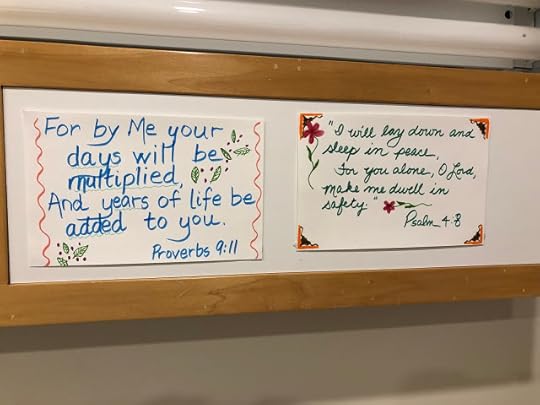 For by Me your
days will be
multiplied,
And years of life be
added to you.
Proverbs 9:11
"I will lay down and
sleep in peace,
For you alone, O Lord,
make me dwell in
safety."
Psalm 4:8